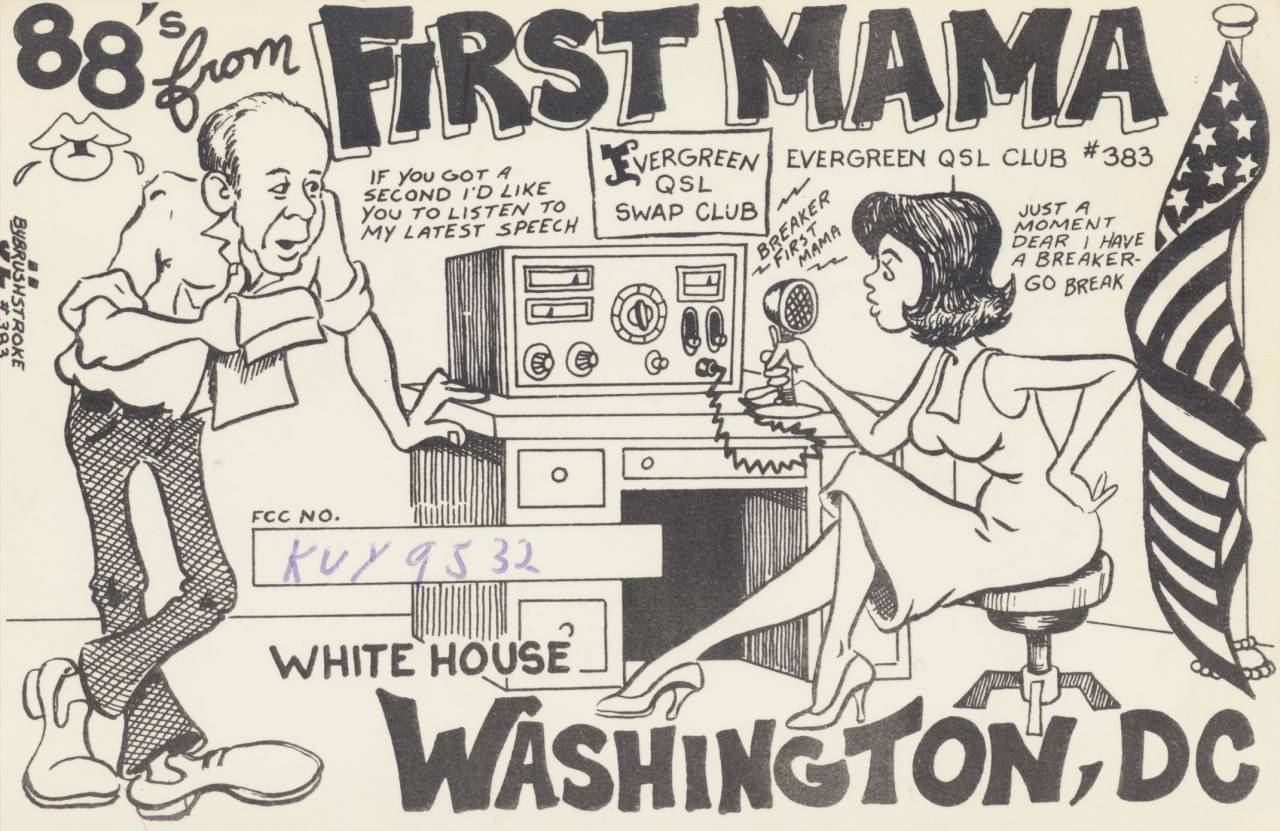 88's from FIRST MAMA
EVERGREEN
QSL
SWAP CLUB
EVERGREEN QSL CLUB #383
IF YOU GOT A
SECOND I'D LIKE
YOU TO LISTEN TO
MY LATEST SPEECH
BREAKER
FIRST
MAMA
JUST A
MOMENT
DEAR I HAVE
A BREAKER-
GO BREAK
BY BRUSHSTROKE
#383
FCC NO.
KUY 9532
WHITE HOUSE
WASHINGTON, DC